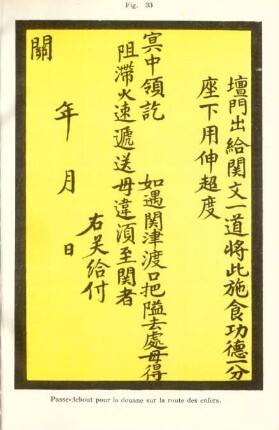 Fig. 33
壇門出給関文一道將此施食功德一分
座下用伸超度
冥中領訖　如遇関津渡口把隘去處毋得
阻滯火速遞送毋違須至関者
右吴給付
年　月　日
關
Passe-debout pour la douane sur la route des enfers.